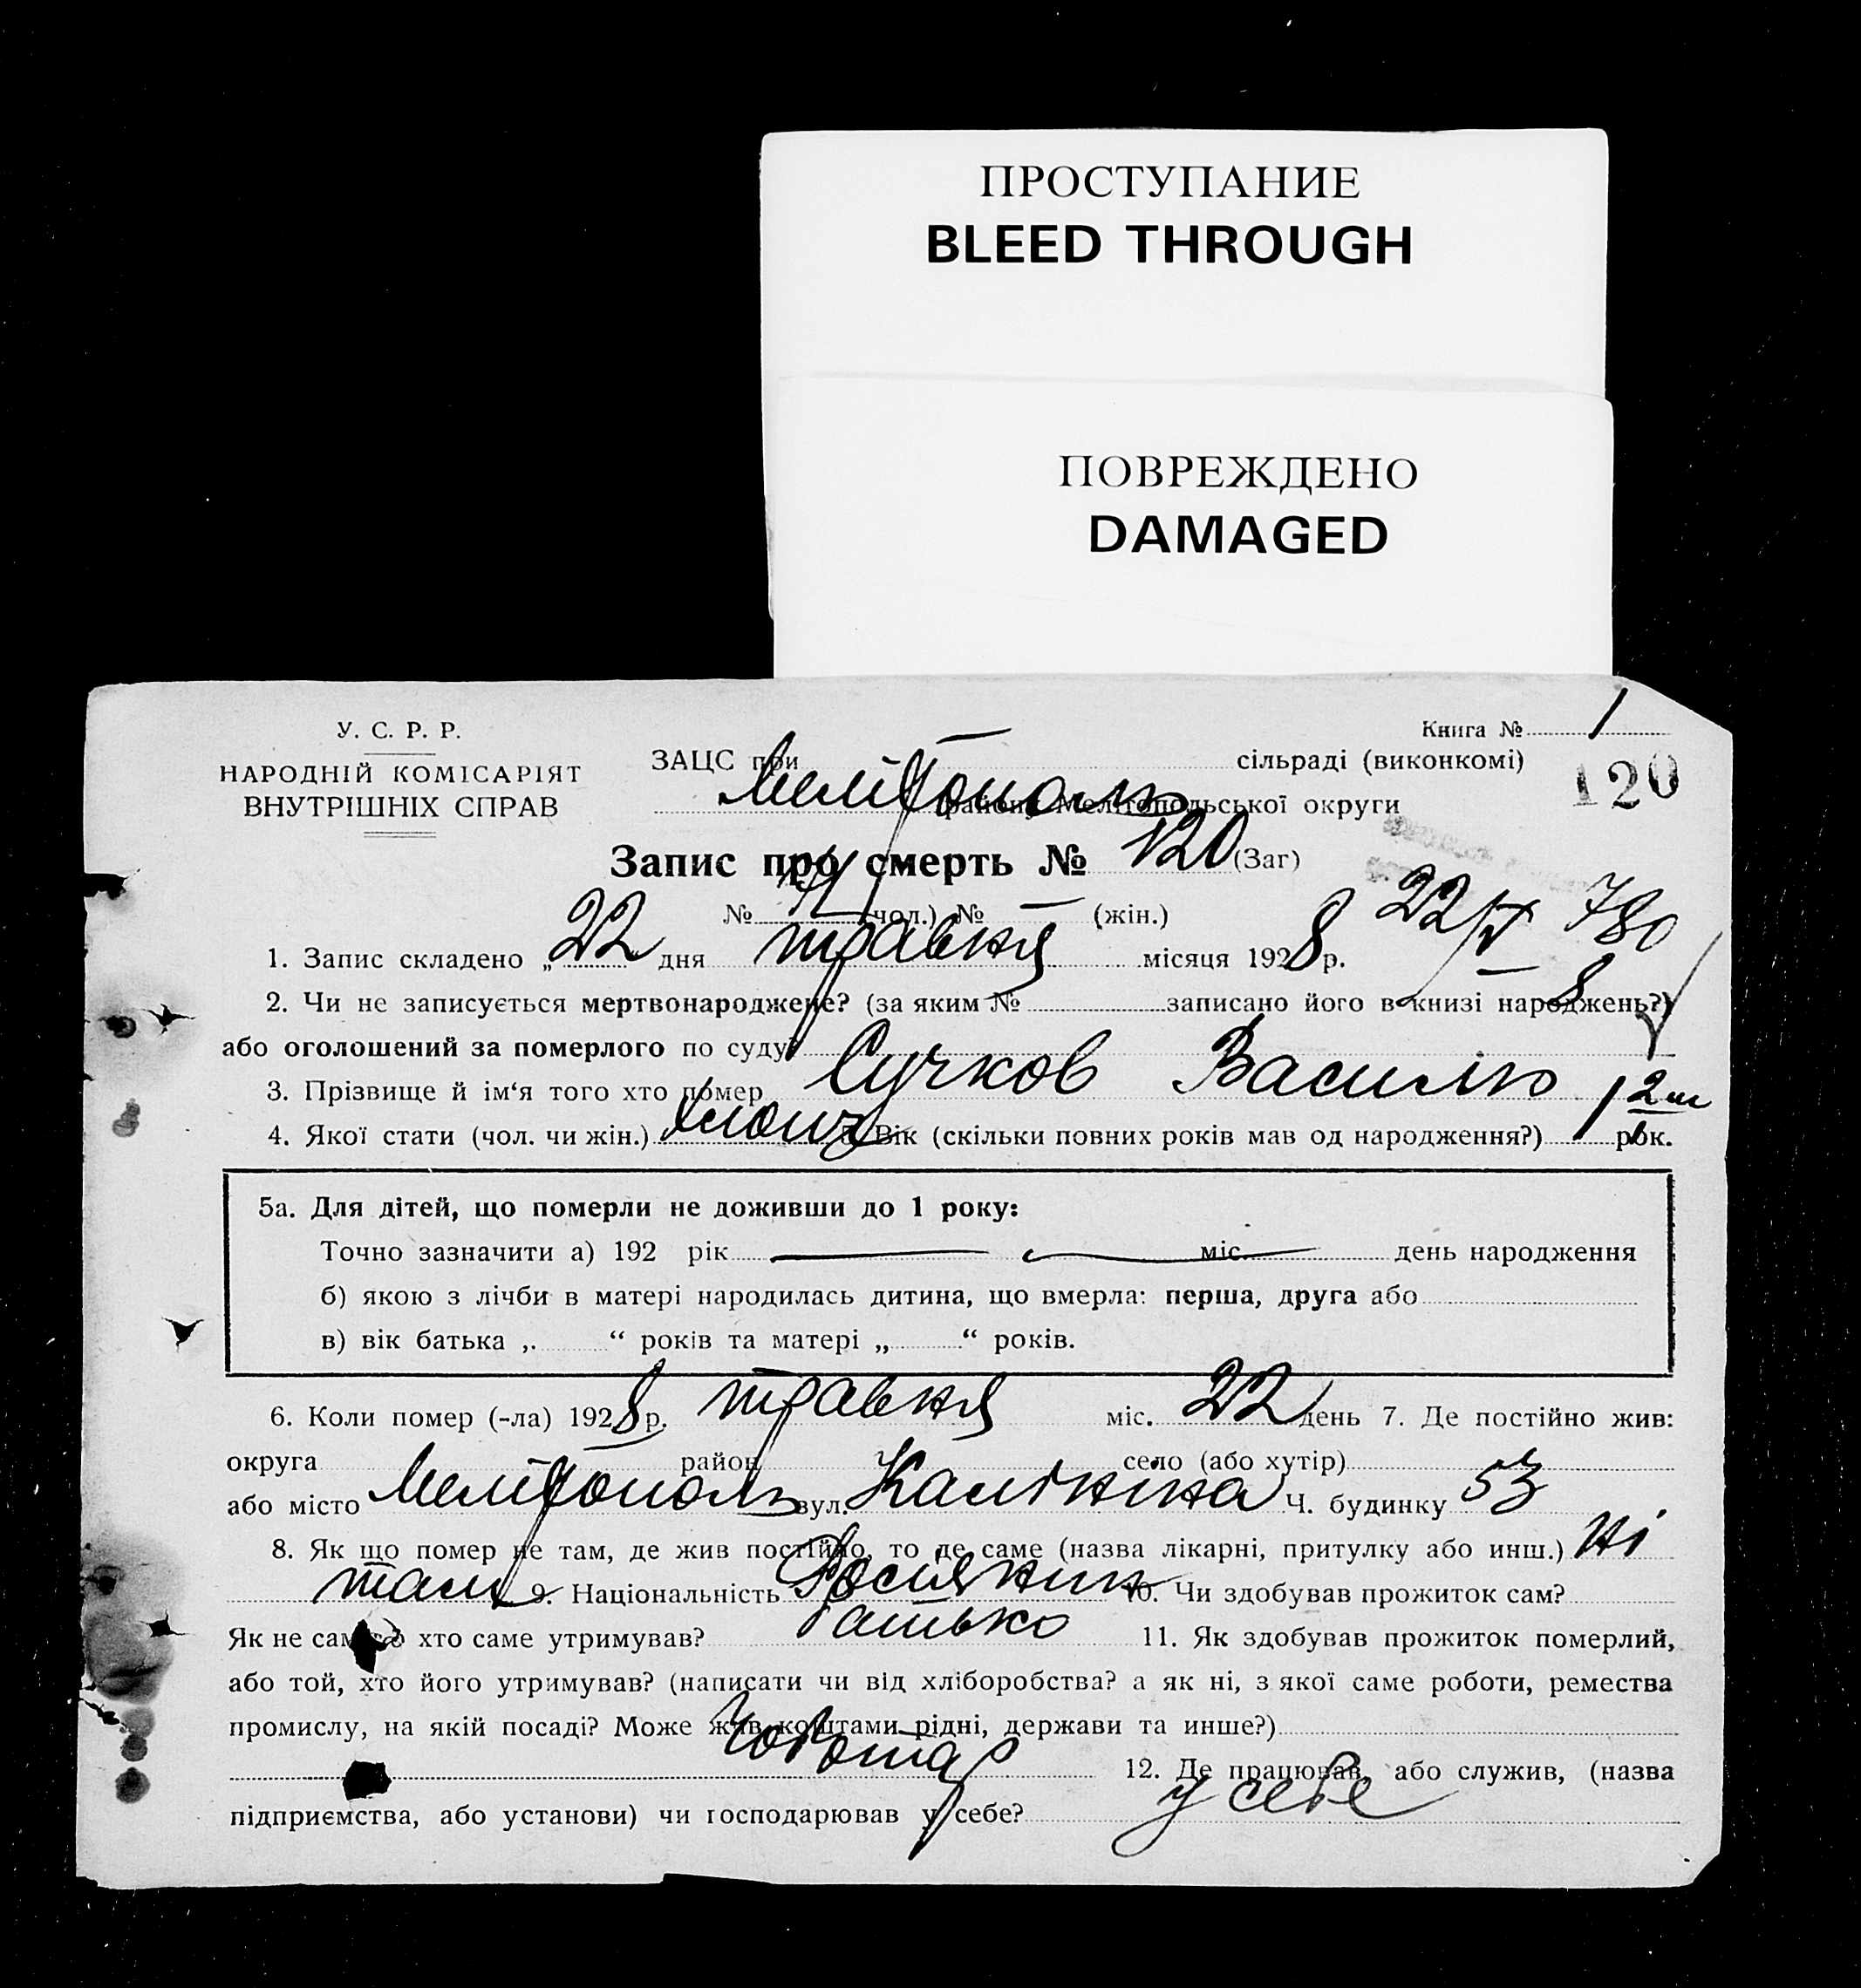 ПРОСТУПАНИЕ
BLEED THROUGH
ПОВРЕЖДЕНО
DAMAGED
У. С. Р. Р.
НАРОДНІЙ КОМІСАРІЯТ
ВНУТРІШНІХ СПРАВ
Книга № 1
ЗАЦС при — сільраді (виконкомі)
120
Мелітополь району Мелітопольської округи
Запис про смерть № 120 (Заг)
№ 71 (чол.) № — (жін.)
22/V 780
8
1. Запис складено „22" дня травня місяця 1928 р.
2. Чи не записується мертвонароджене? (за яким № — записано його в книзі народжень?)
або оголошений за померлого по суду?
3. Прізвище й ім‘я того хто помер Сучков Василь
4. Якої стати (чол. чи жін.) хлопч 5. Вік (скільки повних років мав од народження?) 1 2 м рок.
5а. Для дітей, що померли не доживши до 1 року:
Точно зазначити а) 192 рік — міс. — день народження
б) якою з лічби в матері народилась дитина, що вмерла: перша, друга або
в) вік батька „ “ років та матері „ “ років.
6. Коли помер (-ла) 1928 р. травня міс. 22 день 7. Де постійно жив:
округа район село (або хутір)
або місто Мелітополь вул. Калініна Ч. будинку 53
8. Як що помер не там, де жив постійно, то де саме (назва лікарні, притулку або инш.) Ні
там 9. Національність Росіянин 10. Чи здобував прожиток сам?
Як не сам то хто саме утримував? батько 11. Як здобував прожиток померлий,
або той, хто його утримував? (написати чи від хліборобства? а як ні, з якої саме роботи, ремества
промислу, на якій посаді? Може жив коштами рідні, держави та инше?)
Чоботар 12. Де працював, або служив, (назва
підприємства, або установи) чи господарював у себе? у себе